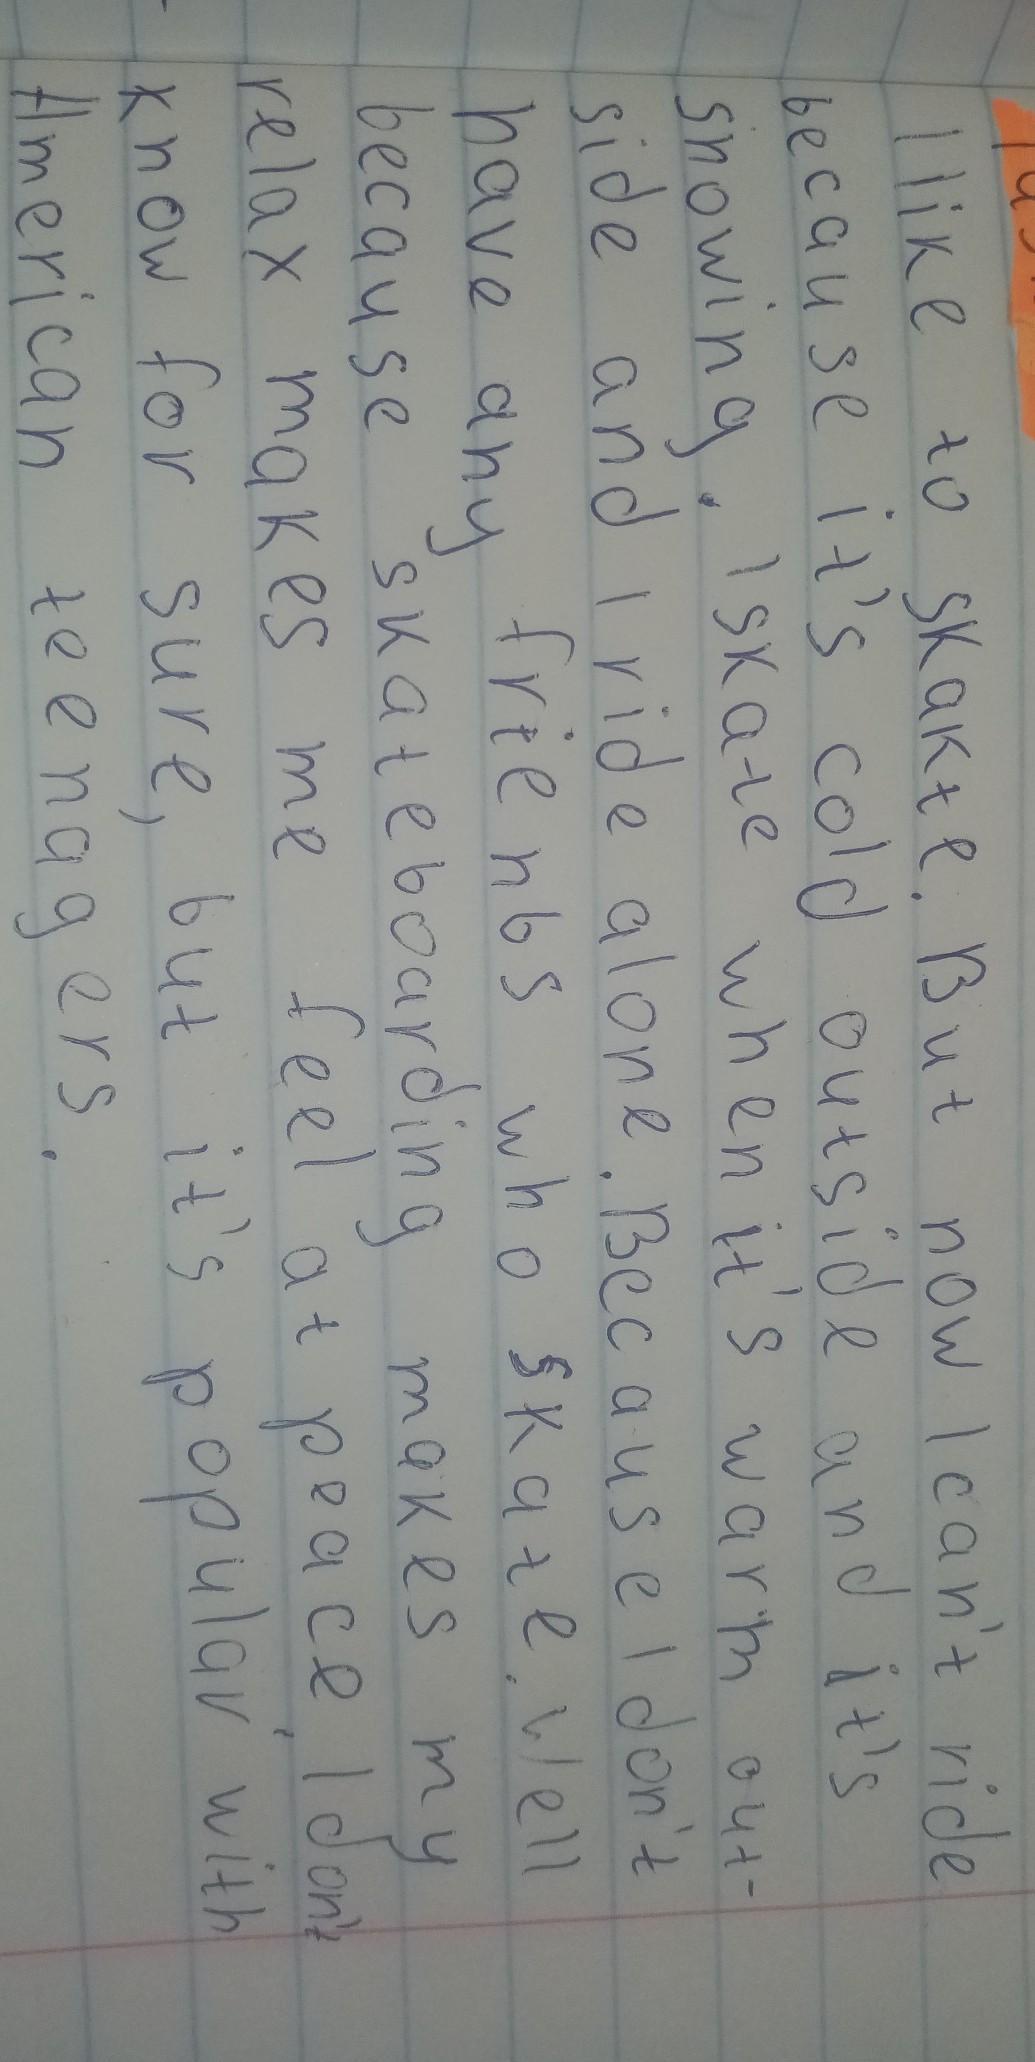 I like to skakte. But now I can't ride
because it's cold outside and it's
snowing. I skate when it's warm out-
side and I ride alone. Because I don't
have any frienbs who skate. Well
because skateboarding makes my
relax makes me feel at peace. I don't
know for sure, but it's popular with
American teenagers.